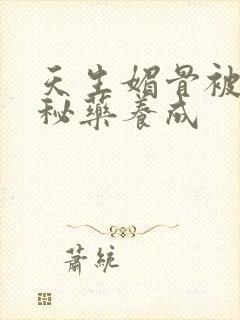 天生媚骨被
秘藥養成
蕭統